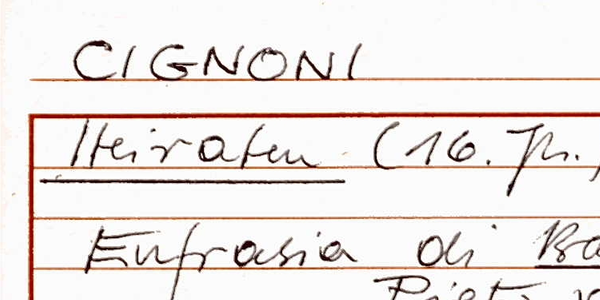 CIGNONI
Heiraten (16. Jh.,
Eufrasia di Ba
Pietr